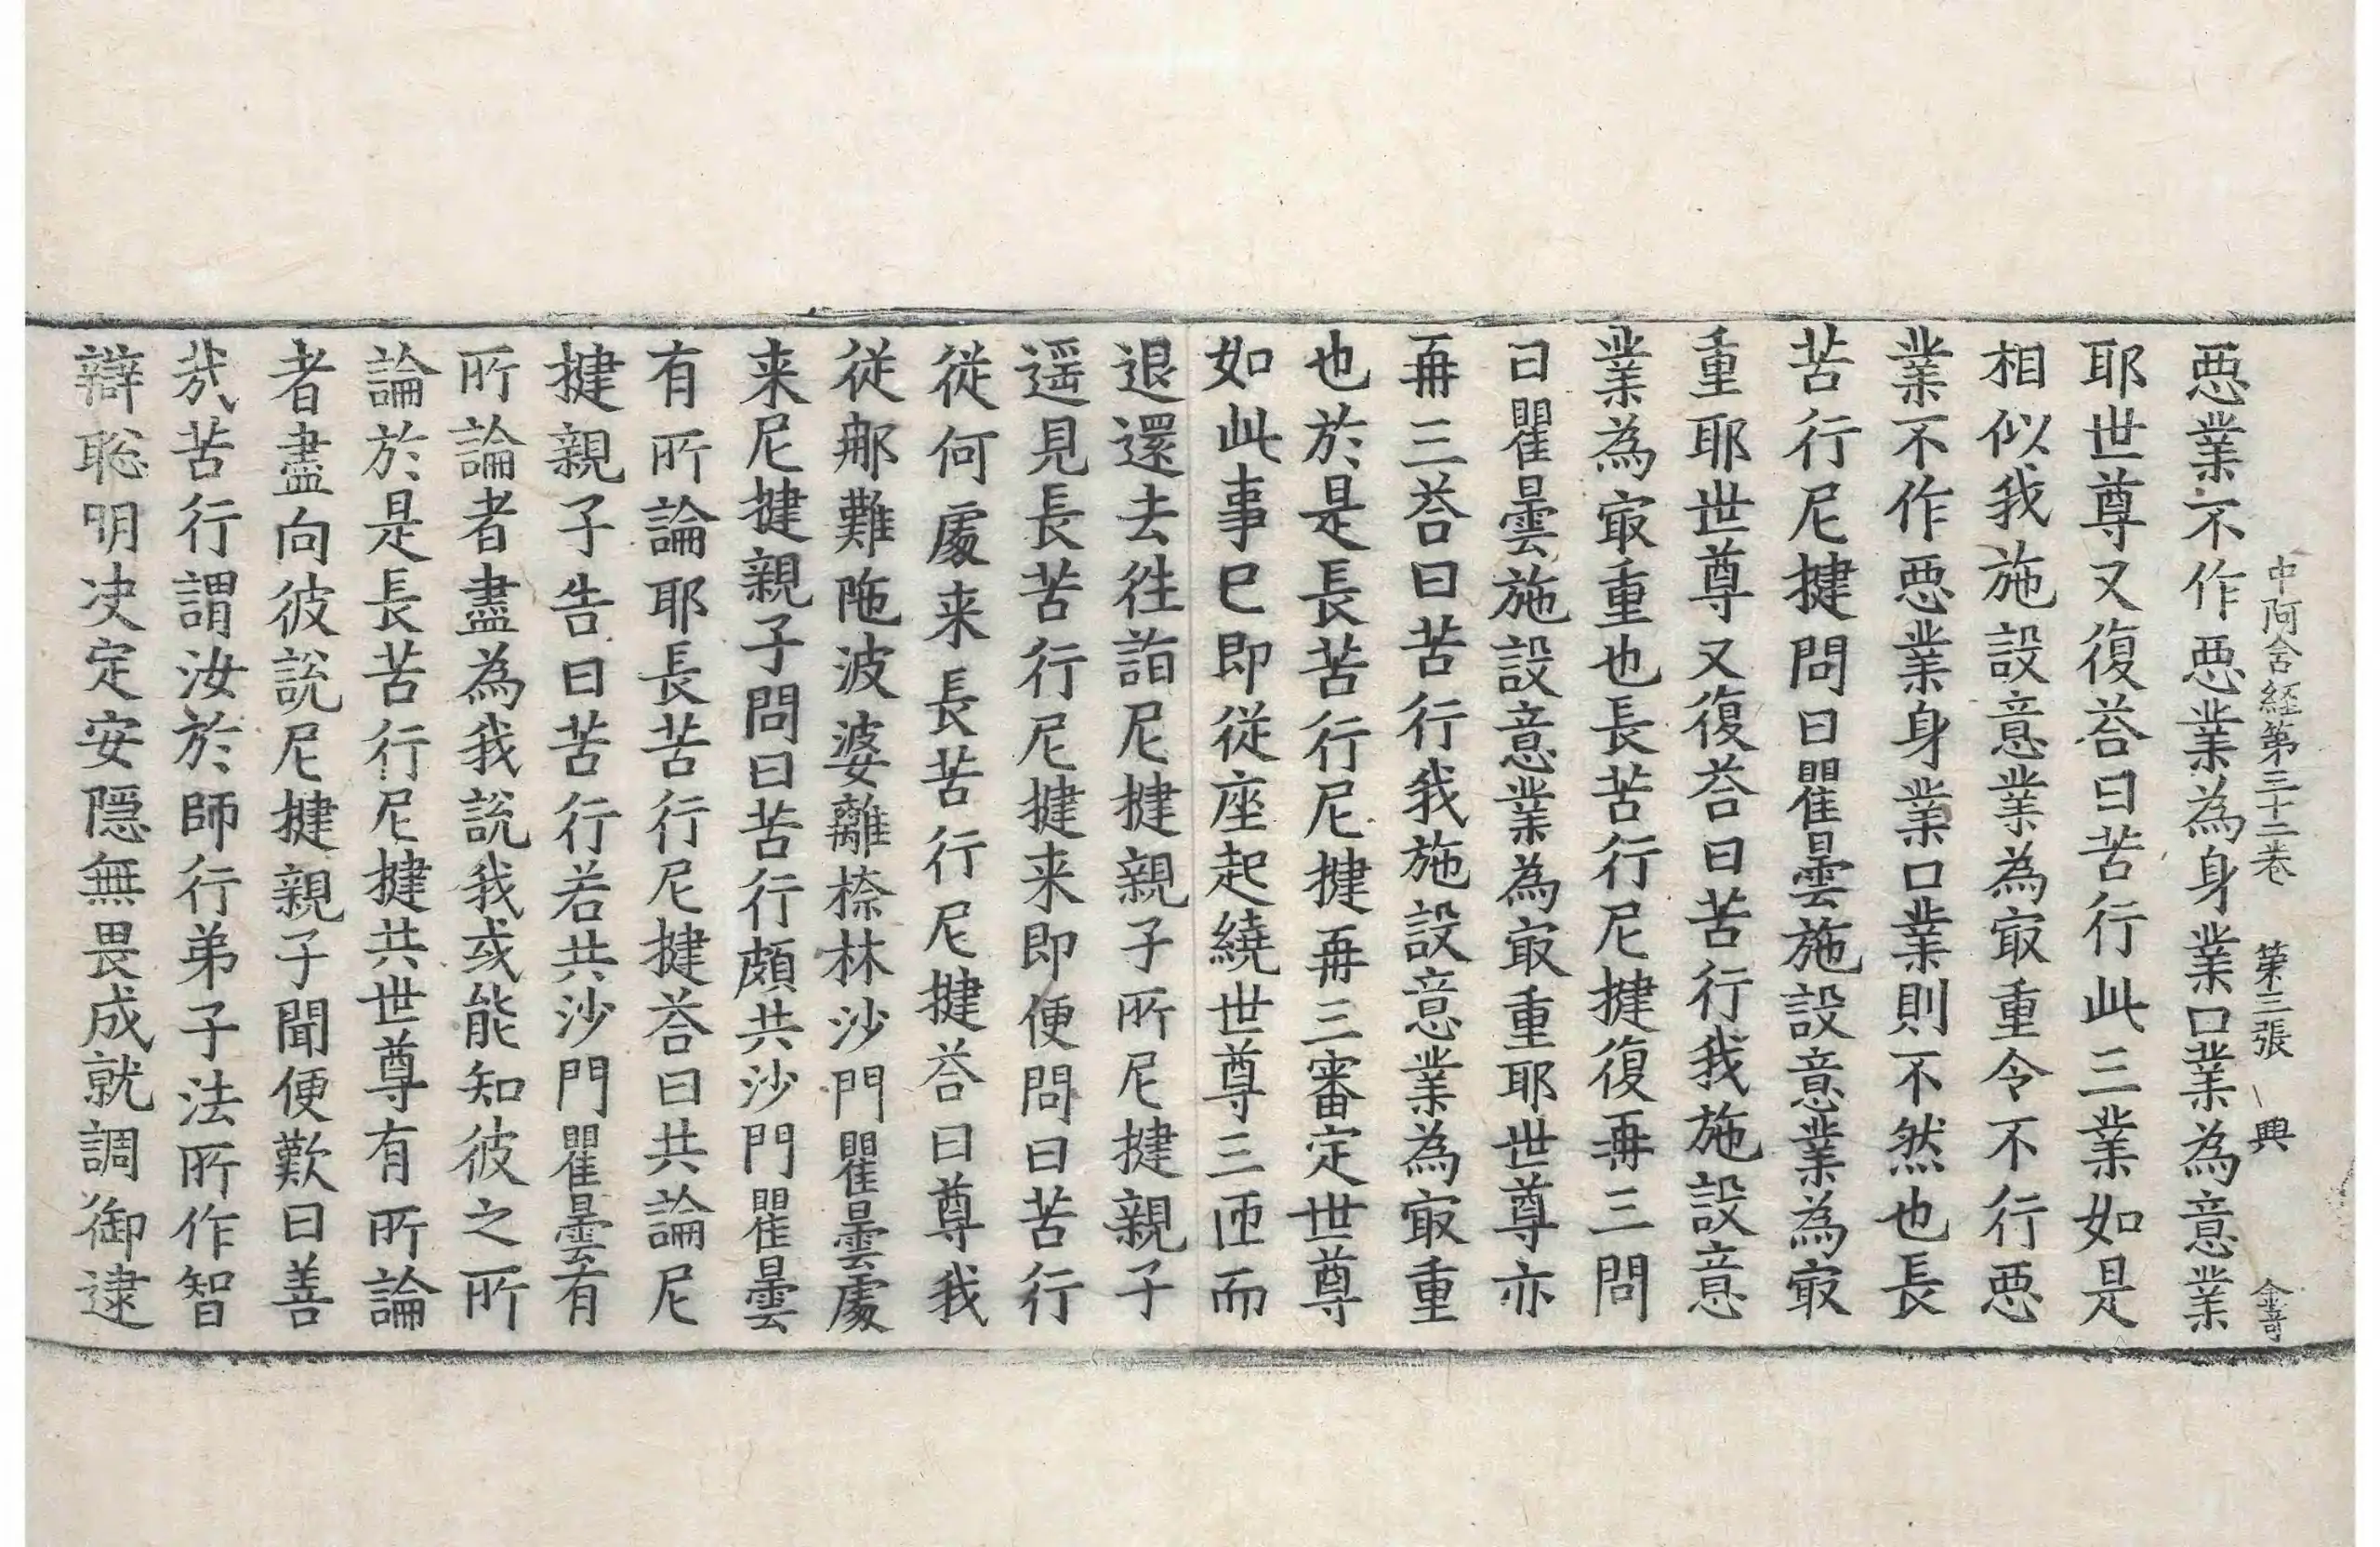 中阿含経第三十二巻 第三張 興
惡業不作惡業為身業口業為意業
耶世尊又復荅曰苦行此三業如是
相似我施設意業為㝡重令不行惡
業不作惡業身業口業則不然也長
苦行尼揵問曰瞿曇施設意業為㝡
重耶世尊又復荅曰苦行我施設意
業為㝡重也長苦行尼揵復再三問
曰瞿曇施設意業為㝡重耶世尊亦
再三荅曰苦行我施設意業為㝡重
也於是長苦行尼揵再三審定世尊
如此事已即從座起繞世尊三匝而
退還去往詣尼揵親子所尼揵親子
遥見長苦行尼揵来即便問曰苦行
從何處来長苦行尼揵荅曰尊我
從那難陁波婆離㮈林沙門瞿曇處
来尼揵親子問曰苦行頗共沙門瞿曇
有所論耶長苦行尼揵荅曰共論尼
揵親子告曰苦行若共沙門瞿曇有
所論者盡為我說我或能知彼之所
論於是長苦行尼揵共世尊有所論
者盡向彼說尼揵親子聞便歎曰善
㢤苦行謂汝於師行弟子法所作智
辯聡明决定安隱無畏成就調御逮